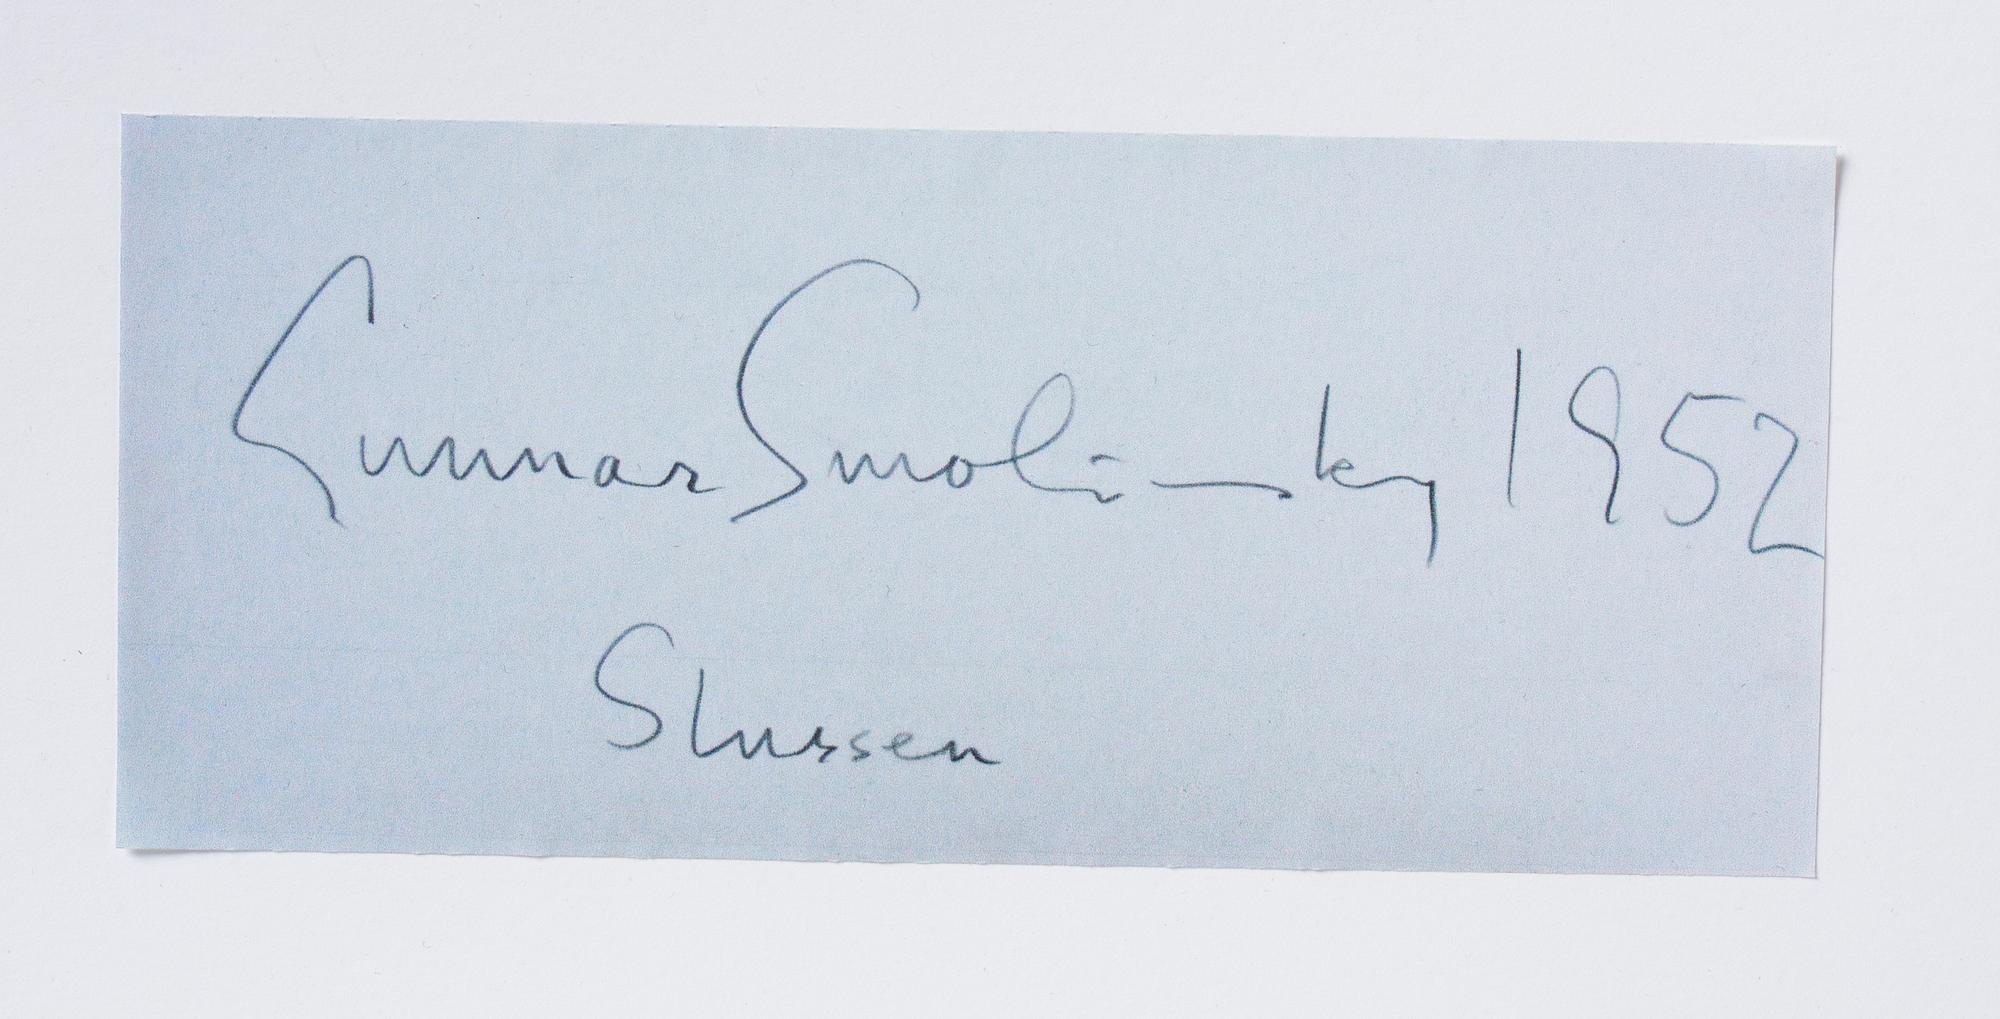 Gunnar Smolinsky 1952
Slussen